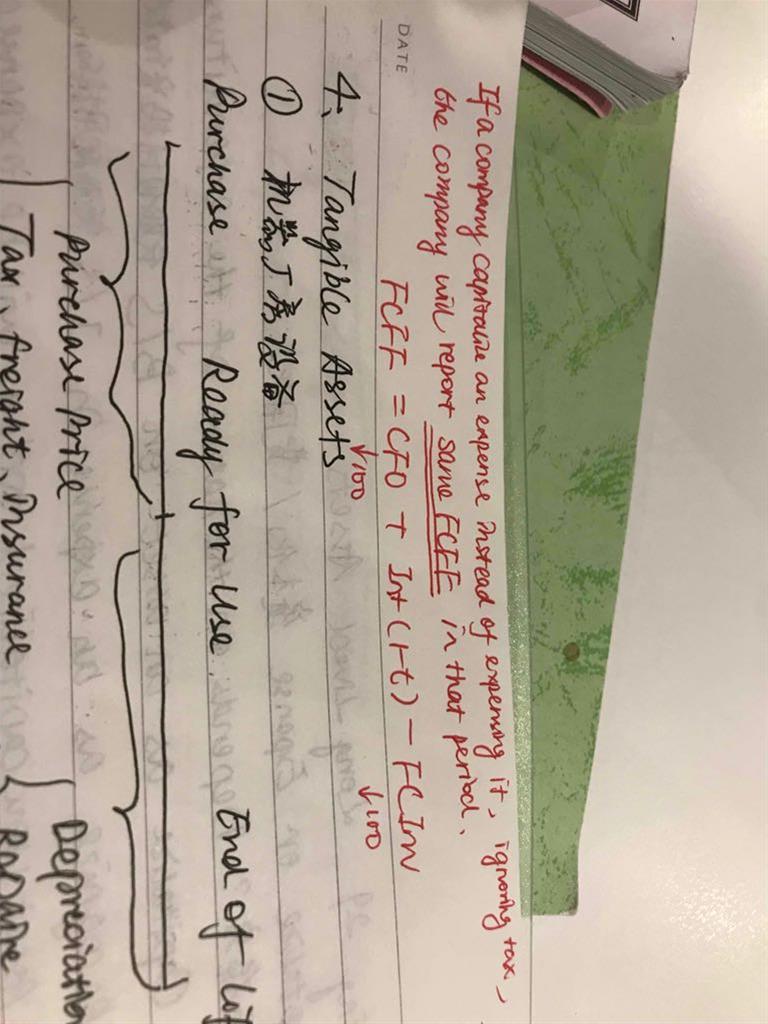 If a company capitalize an expense instead of expensing it, ignoring tax,
the company will report same FCFF in that period.
FCFF = CFO + Int(1-t) - FCInv
↓100 ↓100
DATE
4、Tangible Assets
① 机器厂房设备
Purchase Ready for Use End of Lif
Purchase Price Depreciation
Tax, freight, Insurance Repaire